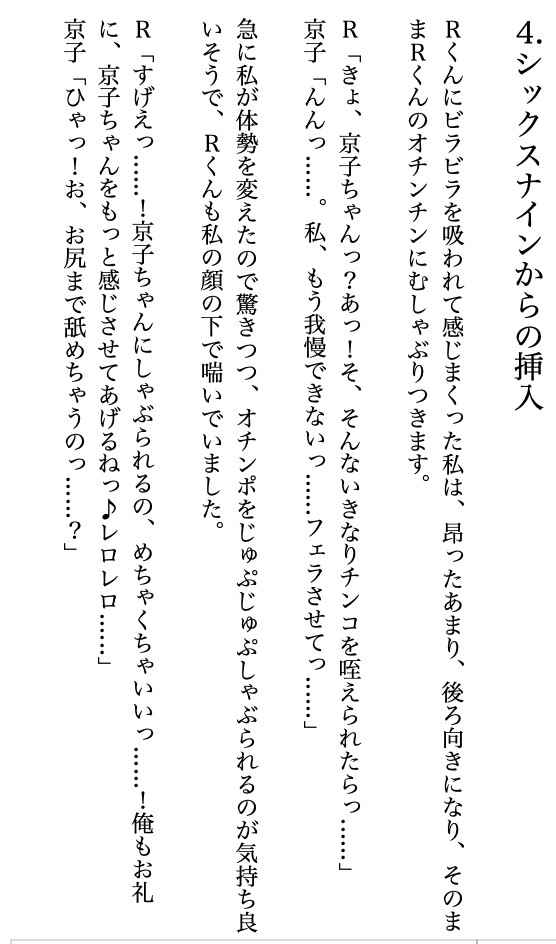 4.シックスナインからの挿入
Rくんにビラビラを吸われて感じまくった私は、昂ったあまり、後ろ向きになり、そのま
まRくんのオチンチンにむしゃぶりつきます。
R「きょ、京子ちゃんっ？あっ！そ、そんないきなりチンコを咥えられたらっ……」
京子「んんっ……。私、もう我慢できないっ……フェラさせてっ……」
急に私が体勢を変えたので驚きつつ、オチンポをじゅぷじゅぷしゃぶられるのが気持ち良
いそうで、Rくんも私の顔の下で喘いでいました。
R「すげえっ……！京子ちゃんにしゃぶられるの、めちゃくちゃいいっ……！俺もお礼
に、京子ちゃんをもっと感じさせてあげるねっ♪レロレロ……」
京子「ひゃっ！お、お尻まで舐めちゃうのっ……？」